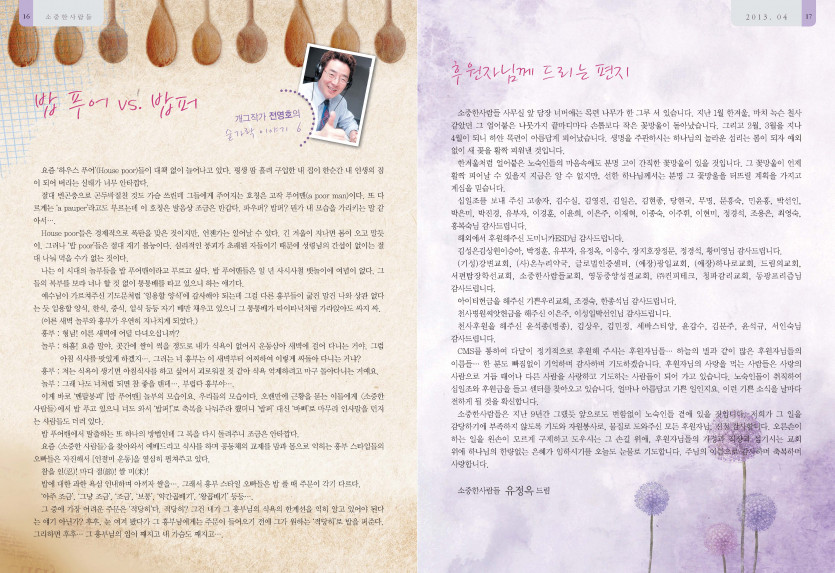 16
소중한사람들
밥 푸어 vs. 밥퍼
개그작가 전영호의
숟가락 이야기 6
요즘 '하우스 푸어'(House poor)들이 대책 없이 늘어나고 있다. 평생 땀 흘려 구입한 내 집이 한순간 내 인생의 짐
이 되어 버리는 실태가 너무 안타깝다.
절대 빈곤으로 곤두박질친 것도 가슴 쓰린데 그들에게 주어지는 호칭은 고작 푸어맨(a poor man)이다. 또 다
르게는 'a pauper'라고도 부르는데 이 호칭은 발음상 조금은 반갑다. 파우퍼? 밥퍼? 뭔가 내 모습을 가리키는 말 같
아서….
House poor들은 경제적으로 폭탄을 맞은 것이지만, 언젠가는 일어날 수 있다. 긴 겨울이 지나면 봄이 오고 말듯
이. 그러나 '밥 poor'들은 절대 재기 불능이다. 심리적인 붕괴가 초래된 자들이기 때문에 생명님의 간섭이 없이는 절
대 나눠 먹을 수가 없는 것이다.
나는 이 시대의 놀부들을 밥 푸어맨이라고 부르고 싶다. 밥 푸어맨들은 일 년 사시사철 맷놀이에 여념이 없다. 그
들의 복부를 보라 너나 할 것 없이 통뱃배를 타고 있으니 하는 얘기다.
예수님이 가르쳐주신 기도문처럼 '일용할 양식'에 감사해야 되는데 그럼 다른 흥부들이 굶건 말건 나와 상관 없다
는 듯 일용할 양식, 한식, 중식, 일식 등등 자기 배만 채우고 있으니 그 통뱃배가 타이타닉처럼 가라앉아도 싸지 싸.
(이른 새벽 놀부와 흥부가 우연히 지나치게 되었다.)
흥부 : 형님! 이른 새벽에 어딜 다녀오십니까?
놀부 : 허흠! 요즘 말야, 곳간에 쌀이 썩을 정도로 내가 식욕이 없어서 운동삼아 새벽에 걷어 다니는 거야. 그럼
아침 식사를 맛있게 하겠지…. 그러는 너 흥부는 이 새벽부터 어찌하여 이렇게 싸돌아 다니는 거냐?
흥부 : 저는 식욕이 생기면 아침식사를 하고 싶어서 괴로워질 것 같아 식욕 억제하려고 마구 돌아다니는 거예요.
놀부 : 그래 나도 너처럼 되면 참 좋을 텐데…. 부럽다 흥부야….
이게 바로 '멘탈붕괴' [밥 푸어맨] 놀부의 모습이요, 우리들의 모습이다. 오랜만에 근황을 묻는 이들에게 〈소중한
사람들〉에서 밥 푸고 있으니 너도 와서 '밥퍼'로 축복을 나눠주라 했더니 '밥퍼' 대신 '바뻐'로 마무리 인사말을 던지
는 사람들도 더러 있다.
밥 푸어맨에서 탈출하는 또 하나의 방법인데 그 복을 다시 돌려주니 조금은 안타깝다.
요즘 〈소중한 사람들〉을 찾아와서 예배드리고 식사를 하며 공동체의 교제를 맘과 몸으로 익히는 흥부 스타일의
오빠들은 자진해서 [인절미 운동]을 열심히 펼쳐주고 있다.
참을 인(忍)! 마디 절(節)! 쌀 미(米)!
밥에 대한 과한 욕심 인내하며 아끼자 쌀을…. 그래서 흥부 스타일 오빠들은 밥 풀 때 주문이 각기 다르다.
'아주 조금', '그냥 조금', '조금', '보통', '약간곱빼기', '왕곱빼기' 등등….
그 중에 가장 어려운 주문은 '적당히'다. 적당히? 그건 내가 그 흥부님의 식욕의 한계선을 익히 알고 있어야 된다
는 얘기 아닌가? 후후, 눈 여겨 봤다가 그 흥부님에게는 주문이 들어오기 전에 그가 원하는 '적당히'로 밥을 퍼준다.
그러하면 후후… 그 흥부님의 입이 째지고 내 가슴도 째지고….
2013. 04
17
후원자님께 드리는 편지
소중한사람들 사무실 앞 담장 너머에는 목련 나무가 한 그루 서 있습니다. 지난 1월 한겨울, 마치 녹슨 철사
같았던 그 얼어붙은 나뭇가지 끝마디마다 손톱보다 작은 꽃망울이 돋아났습니다. 그리고 2월, 3월을 지나
4월이 되니 하얀 목련이 아름답게 피어났습니다. 생명을 주관하시는 하나님의 놀라운 섭리는 봄이 되자 예외
없이 새 꽃을 활짝 피워낸 것입니다.
한겨울처럼 얼어붙은 노숙인들의 마음속에도 분명 고이 간직한 꽃망울이 있을 것입니다. 그 꽃망울이 언제
활짝 피어날 수 있을지 지금은 알 수 없지만, 선한 하나님께서는 분명 그 꽃망울을 터뜨릴 계획을 가지고
계심을 믿습니다.
십일조를 보내 주신 고송자, 김수실, 김영진, 김일은, 김현종, 당현국, 무명, 문흥숙, 민윤홍, 박선인,
박은미, 박진경, 유부자, 이경훈, 이윤희, 이은주, 이재혁, 이종숙, 이주환, 이현미, 정경석, 조용은, 최영숙,
홍복숙님 감사드립니다.
해외에서 후원해주신 도미니카ESD님 감사드립니다.
김성은김상원이승아, 박정훈, 유부자, 유정옥, 이응수, 장지호장정문, 정경석, 황미영님 감사드립니다.
(기성)강변교회, (사)온누리약국, 글로벌인증센터, (예장)광일교회, (예장)하나로교회, 드림의교회,
서편탑장학선교회, 소중한사람들교회, 영동중앙성결교회, ㈜진피테크, 청파감리교회, 동광프리즘님
감사드립니다.
아이티헌금을 해주신 기쁜우리교회, 조경숙, 한종석님 감사드립니다.
천사병원희망헌금을 해주신 이은주, 이성일탁선인님 감사드립니다.
천사후원을 해주신 윤석종(병종), 김상우, 김민정, 세바스티앙, 윤갑수, 김문주, 윤석규, 서인숙님
감사드립니다.
CMS를 통하여 다달이 정기적으로 후원해 주시는 후원자님들… 하늘의 별과 같이 많은 후원자님들의
이름들… 한 분도 빠짐없이 기억하며 감사하며 기도하겠습니다. 후원자님의 사랑을 먹는 사람들은 사랑의
사람으로 거듭 태어나 다른 사람을 사랑하고 기도하는 사람들이 되어 가고 있습니다. 노숙인들이 취직하여
십일조와 후원금을 들고 센터를 찾아오고 있습니다. 얼마나 아름답고 기쁜 일인지요. 이런 기쁜 소식을 날마다
전하게 될 것을 확신합니다.
소중한사람들은 지난 9년간 그랬듯 앞으로도 변함없이 노숙인들 곁에 있을 것입니다. 저희가 그 일을
감당하기에 부족하지 않도록 기도와 자원봉사로, 물질로 도와주신 모든 후원자님, 진정 감사합니다. 오른손이
하는 일을 왼손이 모르게 구제하고 도우시는 그 손길 위에, 후원자님들의 가정과 직장과 섬기시는 교회
위에 하나님의 한량없는 은혜가 임하시기를 오늘도 눈물로 기도합니다. 주님의 이름으로 감사하며 축복하며
사랑합니다.
소중한사람들 유정옥 드림